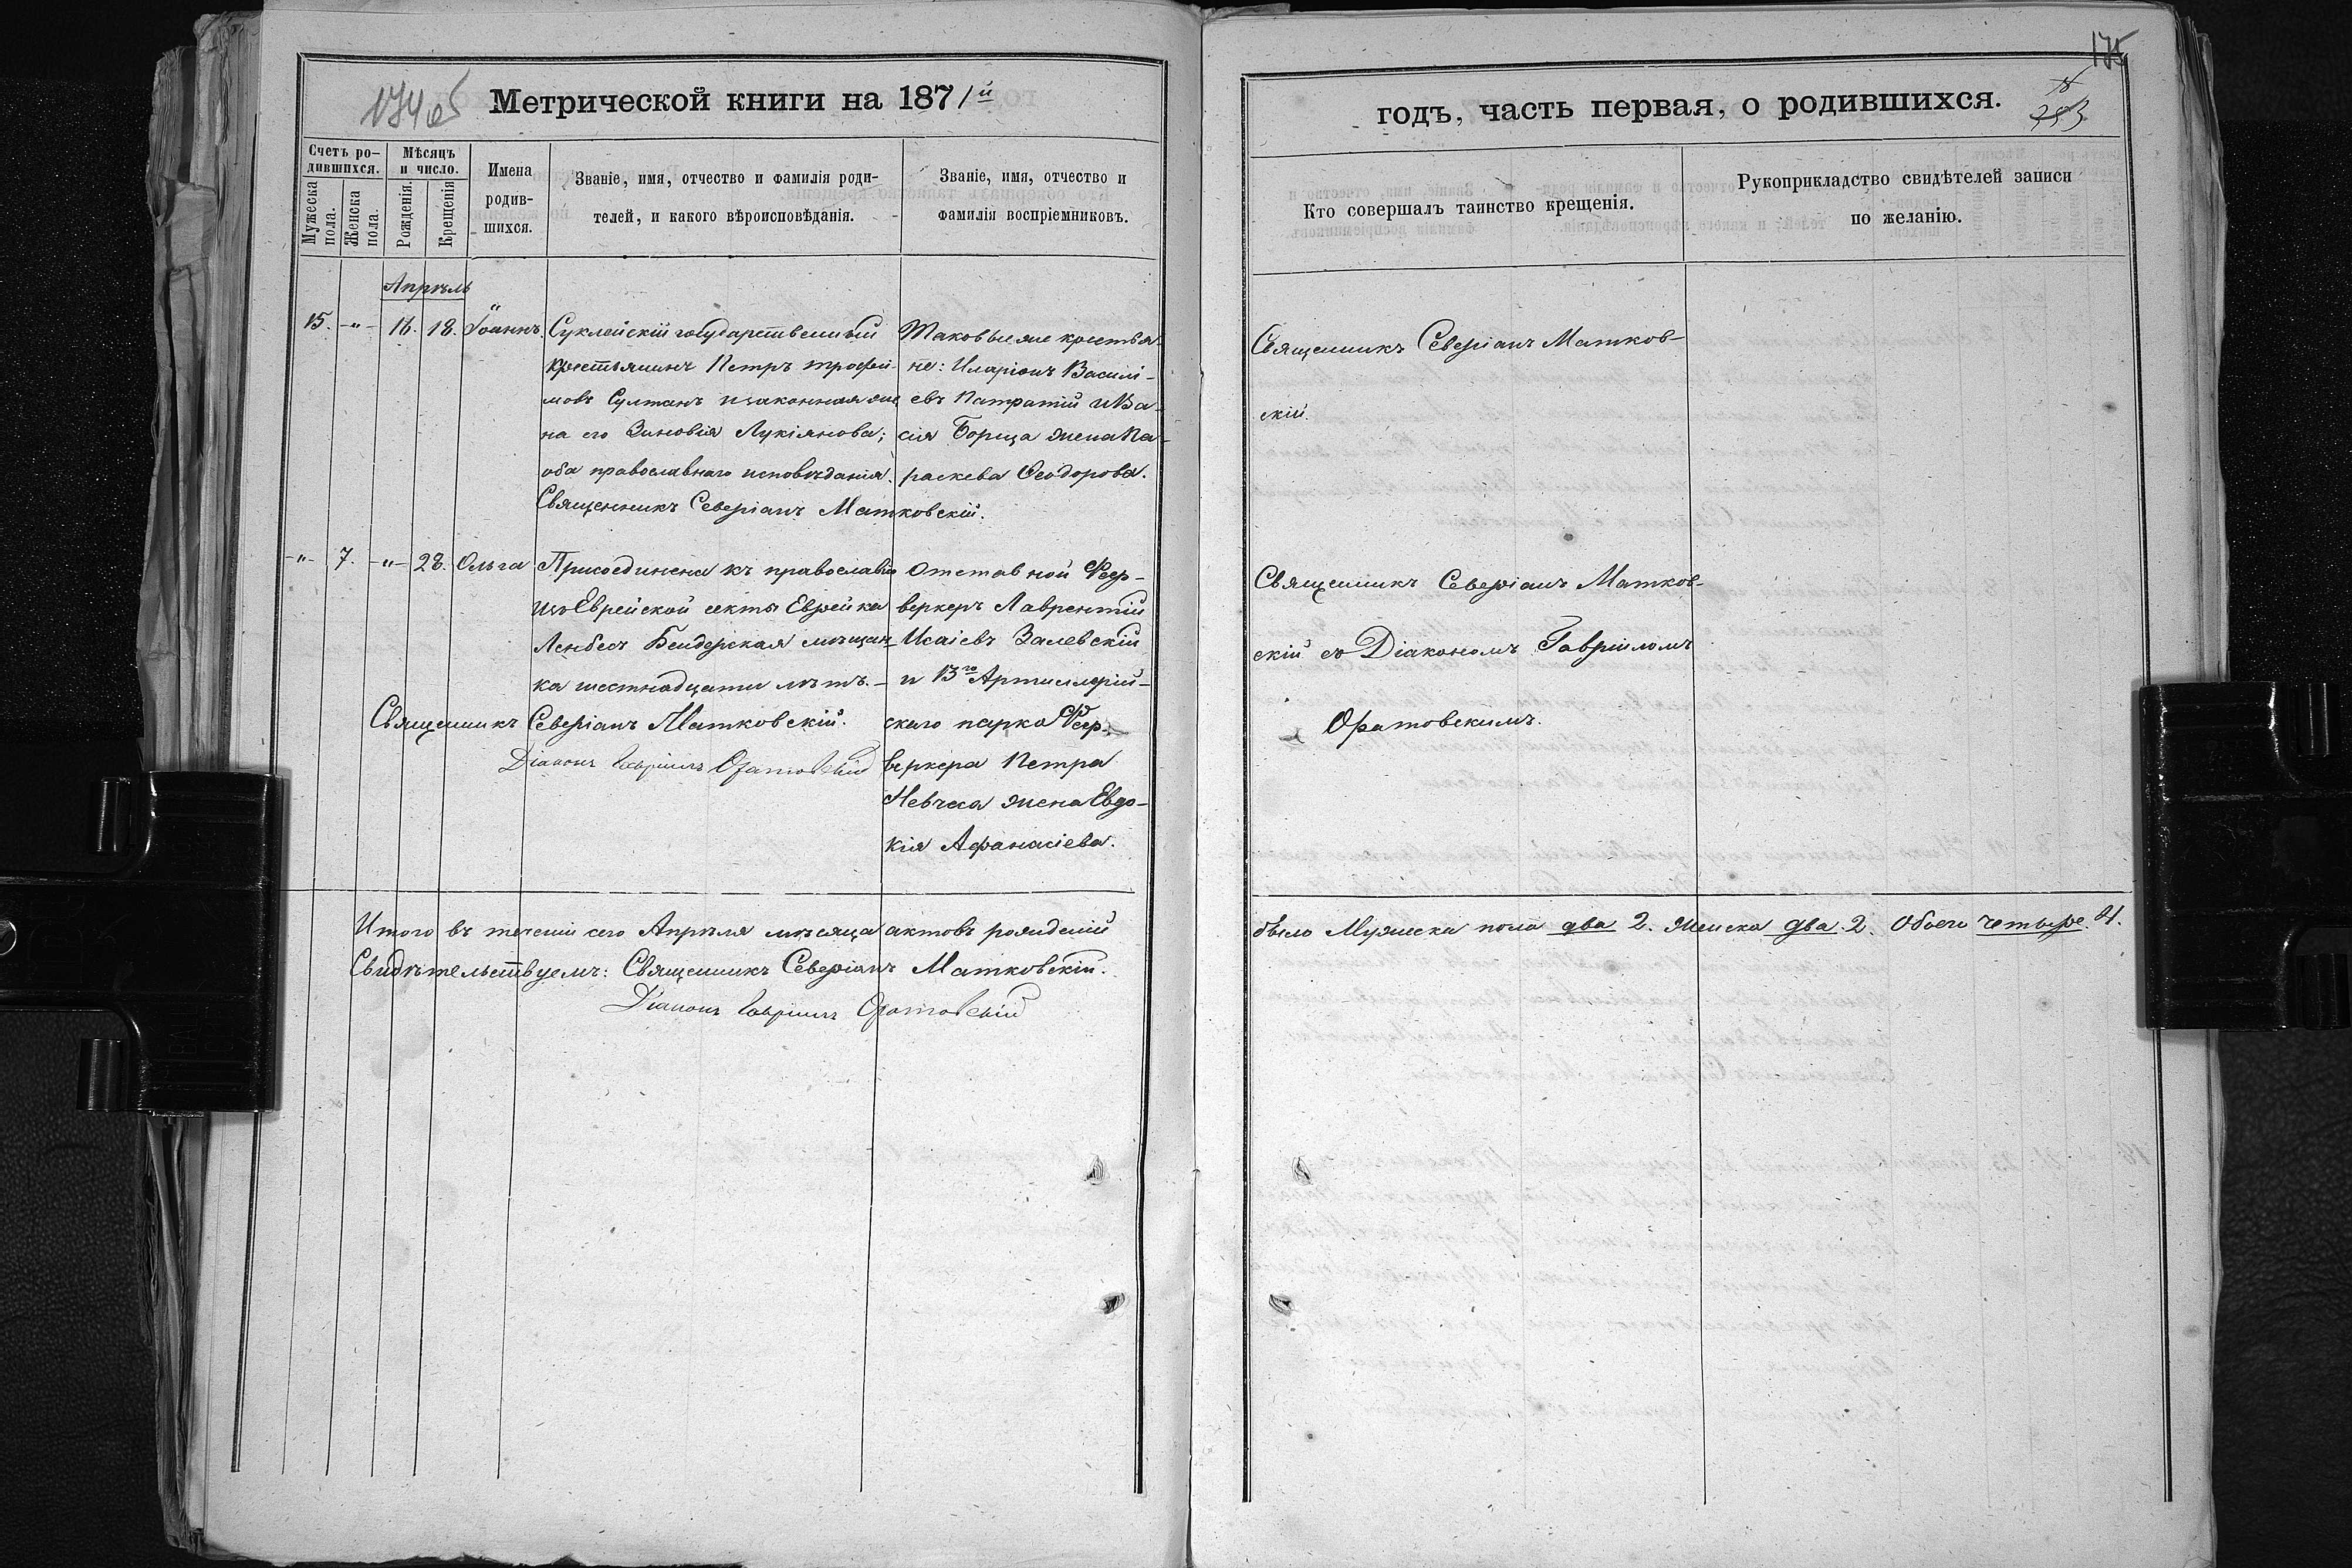 174об
Метрической книги на 1871й
Счетъ ро-
дившихся.
Мужеска
пола.
Женска
пола.
Мѣсяцъ
и число.
Рожденія.
Крещенія
Имена
родив-
шихся.
Званіе, имя, отчество и фамилія роди-
телей, и какого вѣроисповѣданія.
Званіе, имя, отчество и
фамилія воспріемниковъ.
Апрѣль
15. -"- 16. 18. Іоаннъ.
Суклейскій государственный
крестьянинъ Петръ Трофи-
мовъ Султанъ и законная же
на его Зиновія Лукіянова;
оба православнаго исповѣданія.
Священникъ Северіанъ Матковскій.
Таковые же крестья-
не: Иларіонъ Василі-
евъ Патратій и Ва-
сія Борща жена Па-
раскева Ѳеодорова.
-"- 7. -"- 28. Ольга
Присоединена къ православію
изъ Еврейской секты Еврейка
Бендерская мѣщан-
ка шестнадцати лѣтъ.-
Священникъ Северіанъ Матковскій.
Діаконъ Гавріилъ Оратовскій
Отставной Феер-
веркеръ Лаврентій
Исаіевъ Залевскій
и 13го Артиллерій-
скаго парка Феер-
веркера Петра
жена Евдо-
кія Афанасіева.
Итого въ теченіи сего Апрѣля мѣсяца актовъ рожденій
Свидѣтельствуемъ: Священникъ Северіанъ Матковскій.
Діаконъ Гавріилъ Оратовскій
175
годъ, часть первая, о родившихся.
Кто совершалъ таинство крещенія.
Рукоприкладство свидѣтелей записи
по желанію.
Священникъ Северіанъ Матков-
скій.
Священникъ Северіанъ Матков-
скій съ Діакономъ Гавріиломъ
Оратовскимъ.
было Мужеска пола два 2. Женска два 2. Обоего четыре. 4.